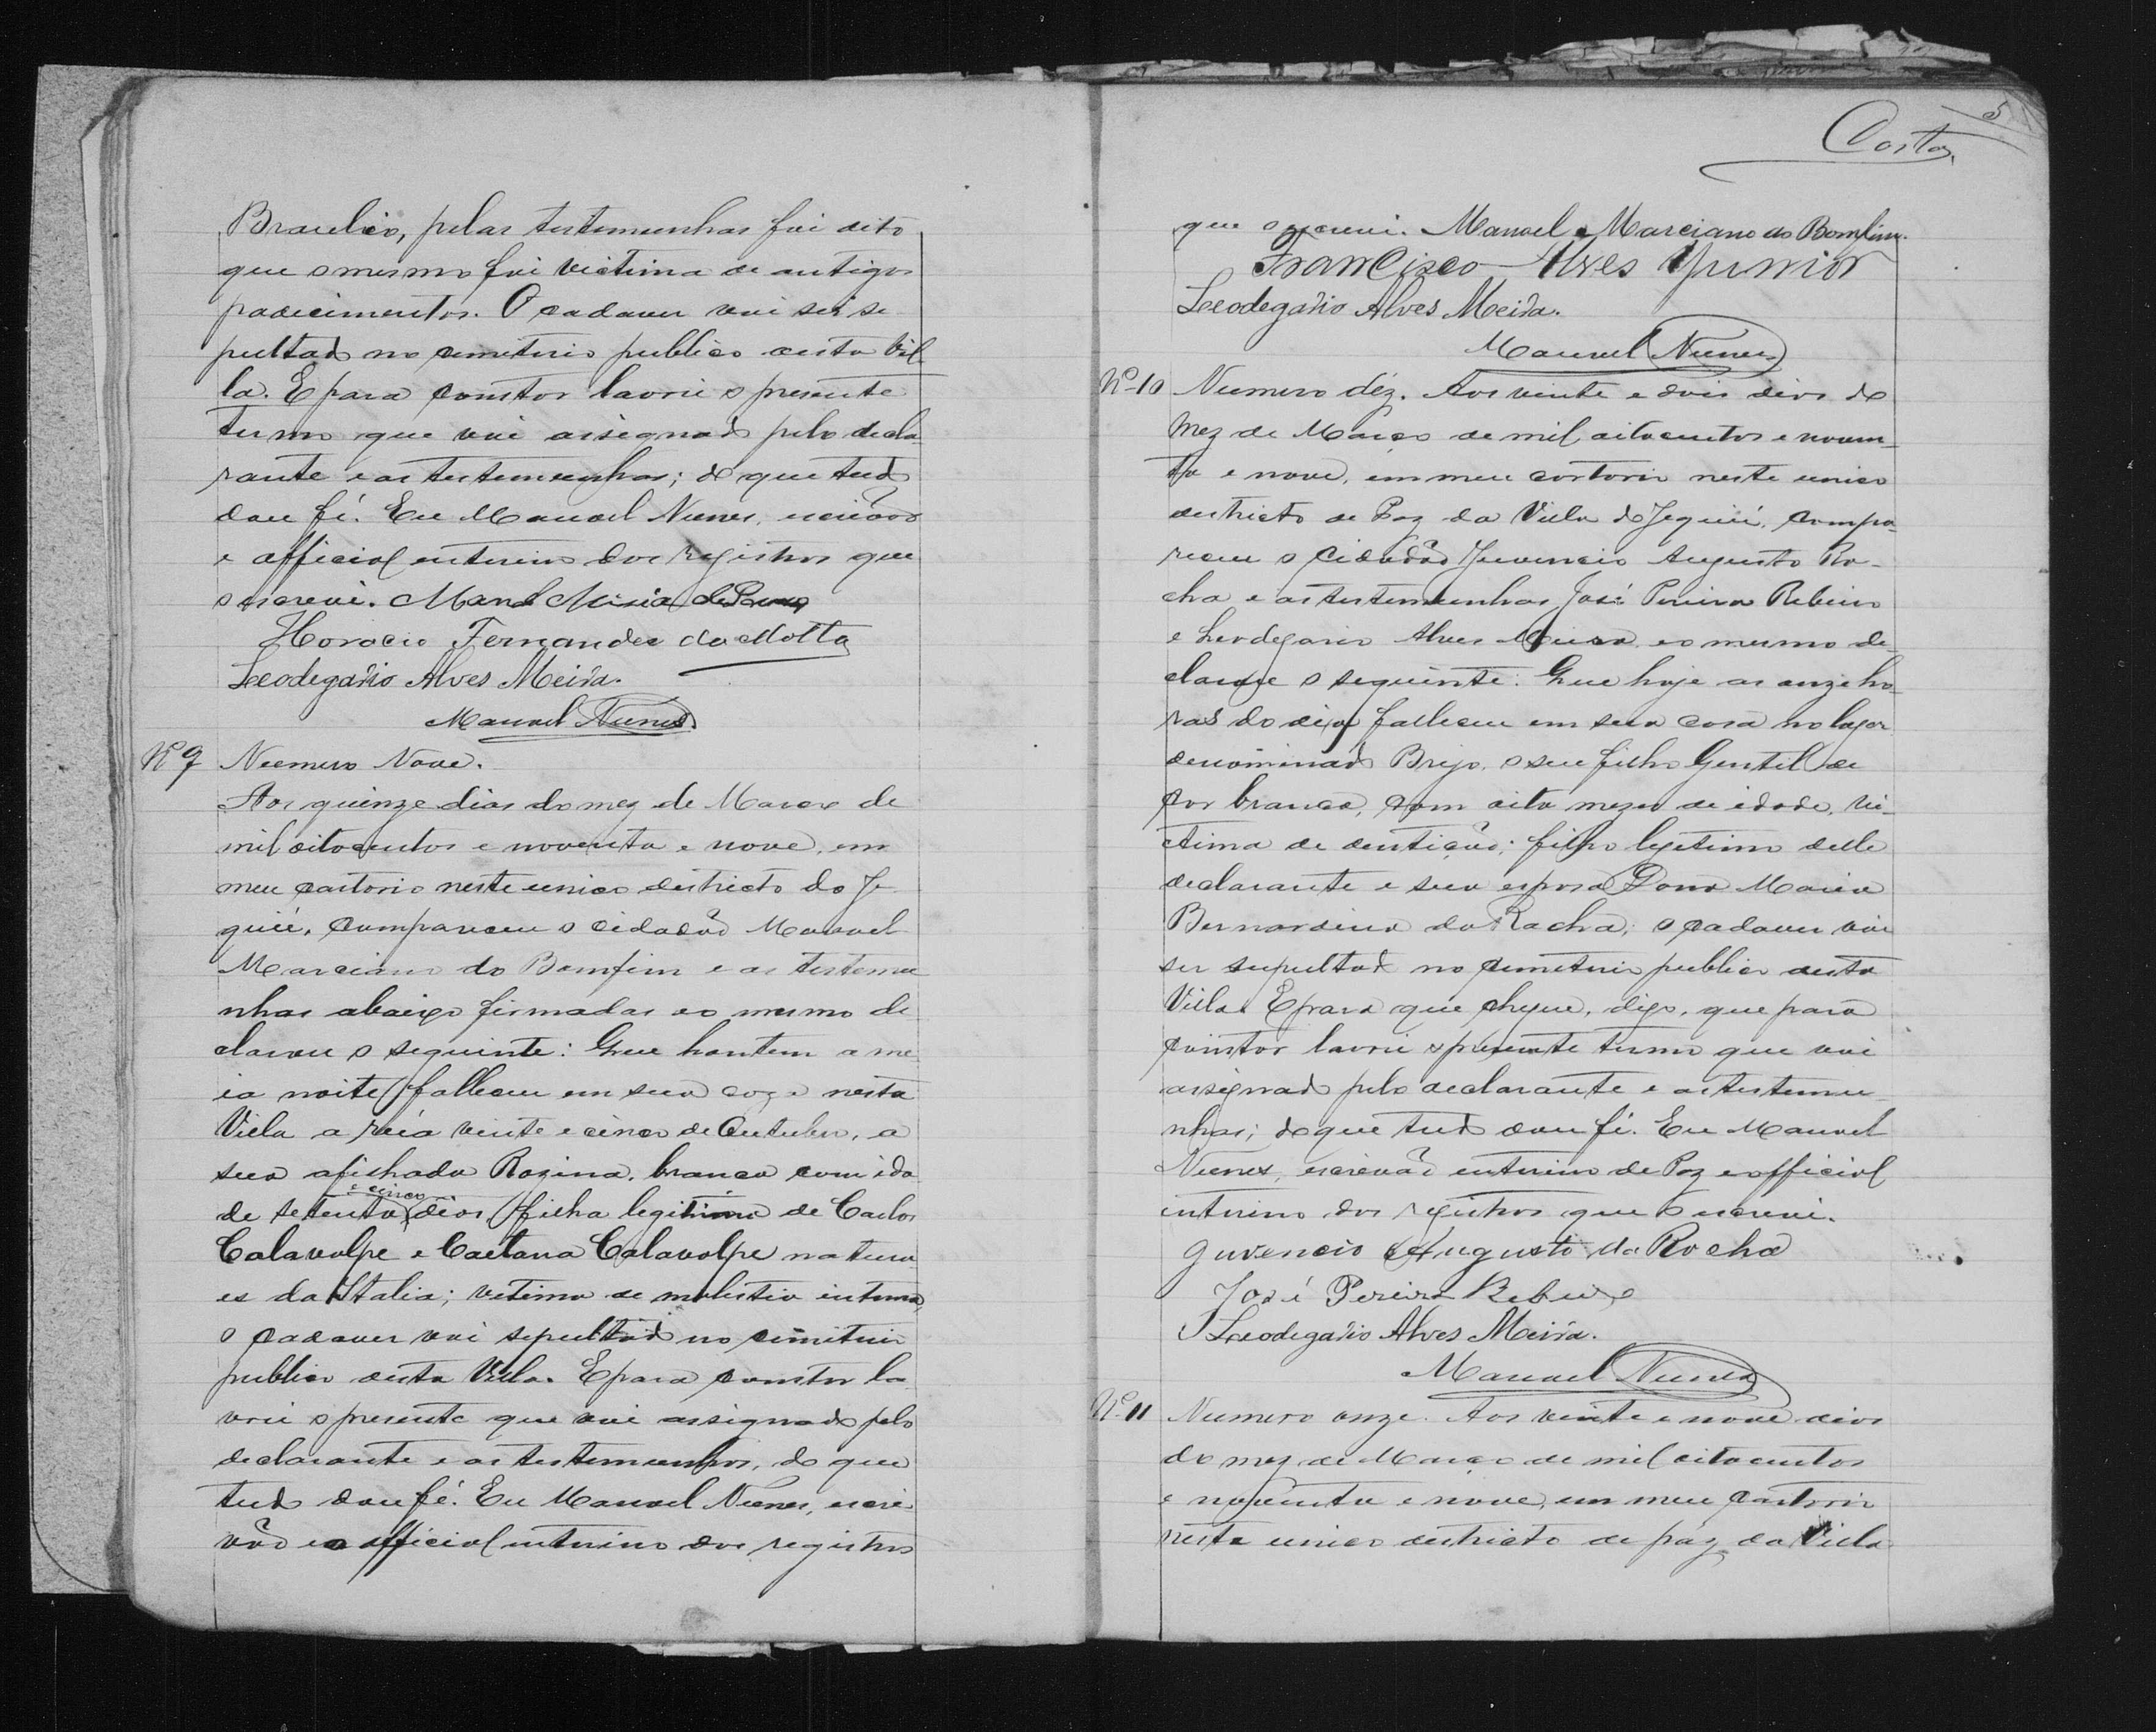 Braulio, pelas testemunhas foi dito
que o mesmo foi victima de antigos
padecimentos. O cadaver vai ser se
pultado no cemiterio publico desta Vil
la. E para constar lavrei o presente
termo que vai assignado pelo decla
rante e as testemunhas; do que tudo
dou fé. Eu Manoel Nunes, escrivão
e official interino dos registros que
o escrevi. Manoel
Horacio Fernandes da Motta
Leodegario Alves Meira.
Manoel Nunes.
Nº 9 Numero Nove.
Aos quinze dias do mez de Março de
mil oitocentos e noventa e nove, em
meu cartorio neste unico destricto do Je
quié, compareceu o cidadão Manoel
Marciano do Bomfim e as testemu
nhas abaixo firmadas e o mesmo de
clarou o seguinte: Que hontem a me
ia noite falleceu em sua caza nesta
Villa a rúa vinte e cinco de Outubro, a
sua afilhada Rozina, branca com ida
de setenta e cinco dias, filha legitima de Carlos
Calavolpe e Caetana Calavolpe natura
es da Italia; vetima de molestia interna,
o cadaver vai sepultado no cimiterio
publico desta Villa. E para constar la
vrei o presente que vai assignado pelo
declarante e as testemunhas, do que
tudo dou fé. Eu Manoel Nunes, escri
vão e o official interino dos registros
5
Costa
que o escrevi. Manoel Marciano do Bomfim.
Francisco Alves Junnior
Leodegario Alves Meira.
Manoel Nunes
Nº 10 Numero déz. Aos vinte e dois dias do
Mez de Março de mil oitocentos e noven-
ta e nove, em meu cartorio neste unico
destricto de Paz da Villa do Jequié, compa-
receu o cidadão Juvencio Augusto Ro-
cha e as testemunhas José Pereira Rebeiro
e Leodegario Alves Meira e o mesmo de-
clarou o seguinte: Que hoje as onze ho-
ras do dia falleceu em sua casa no lugar
denominado Brejo, o seu filho Gentil de
côr branca, com oito mezes de idade, vi-
ctima de dentição; filho legitimo delle
declarante e sua esposa Dona Maria
Bernardina da Racha; o cadaver vai
ser sepultado no cemiterio publico desta
Villa. E para que chegue, digo, que para
constar lavrei o presente termo que vai
assignado pelo declarante e as testemu-
nhas; do que tudo dou fé. Eu Manoel
Nunes, escrivão interino de Paz e official
interino dos registros que o escrevi.
Juvencio Augusto da Rocha
José Pereira Rebeiro
Leodegario Alves Meira.
Manoel Nunes
Nº 11 Numero onze. Aos vinte e nove dias
do mez de Março de mil oitocentos
e noventa e nove, em meu cartorio
neste unico destricto de paz da Villa